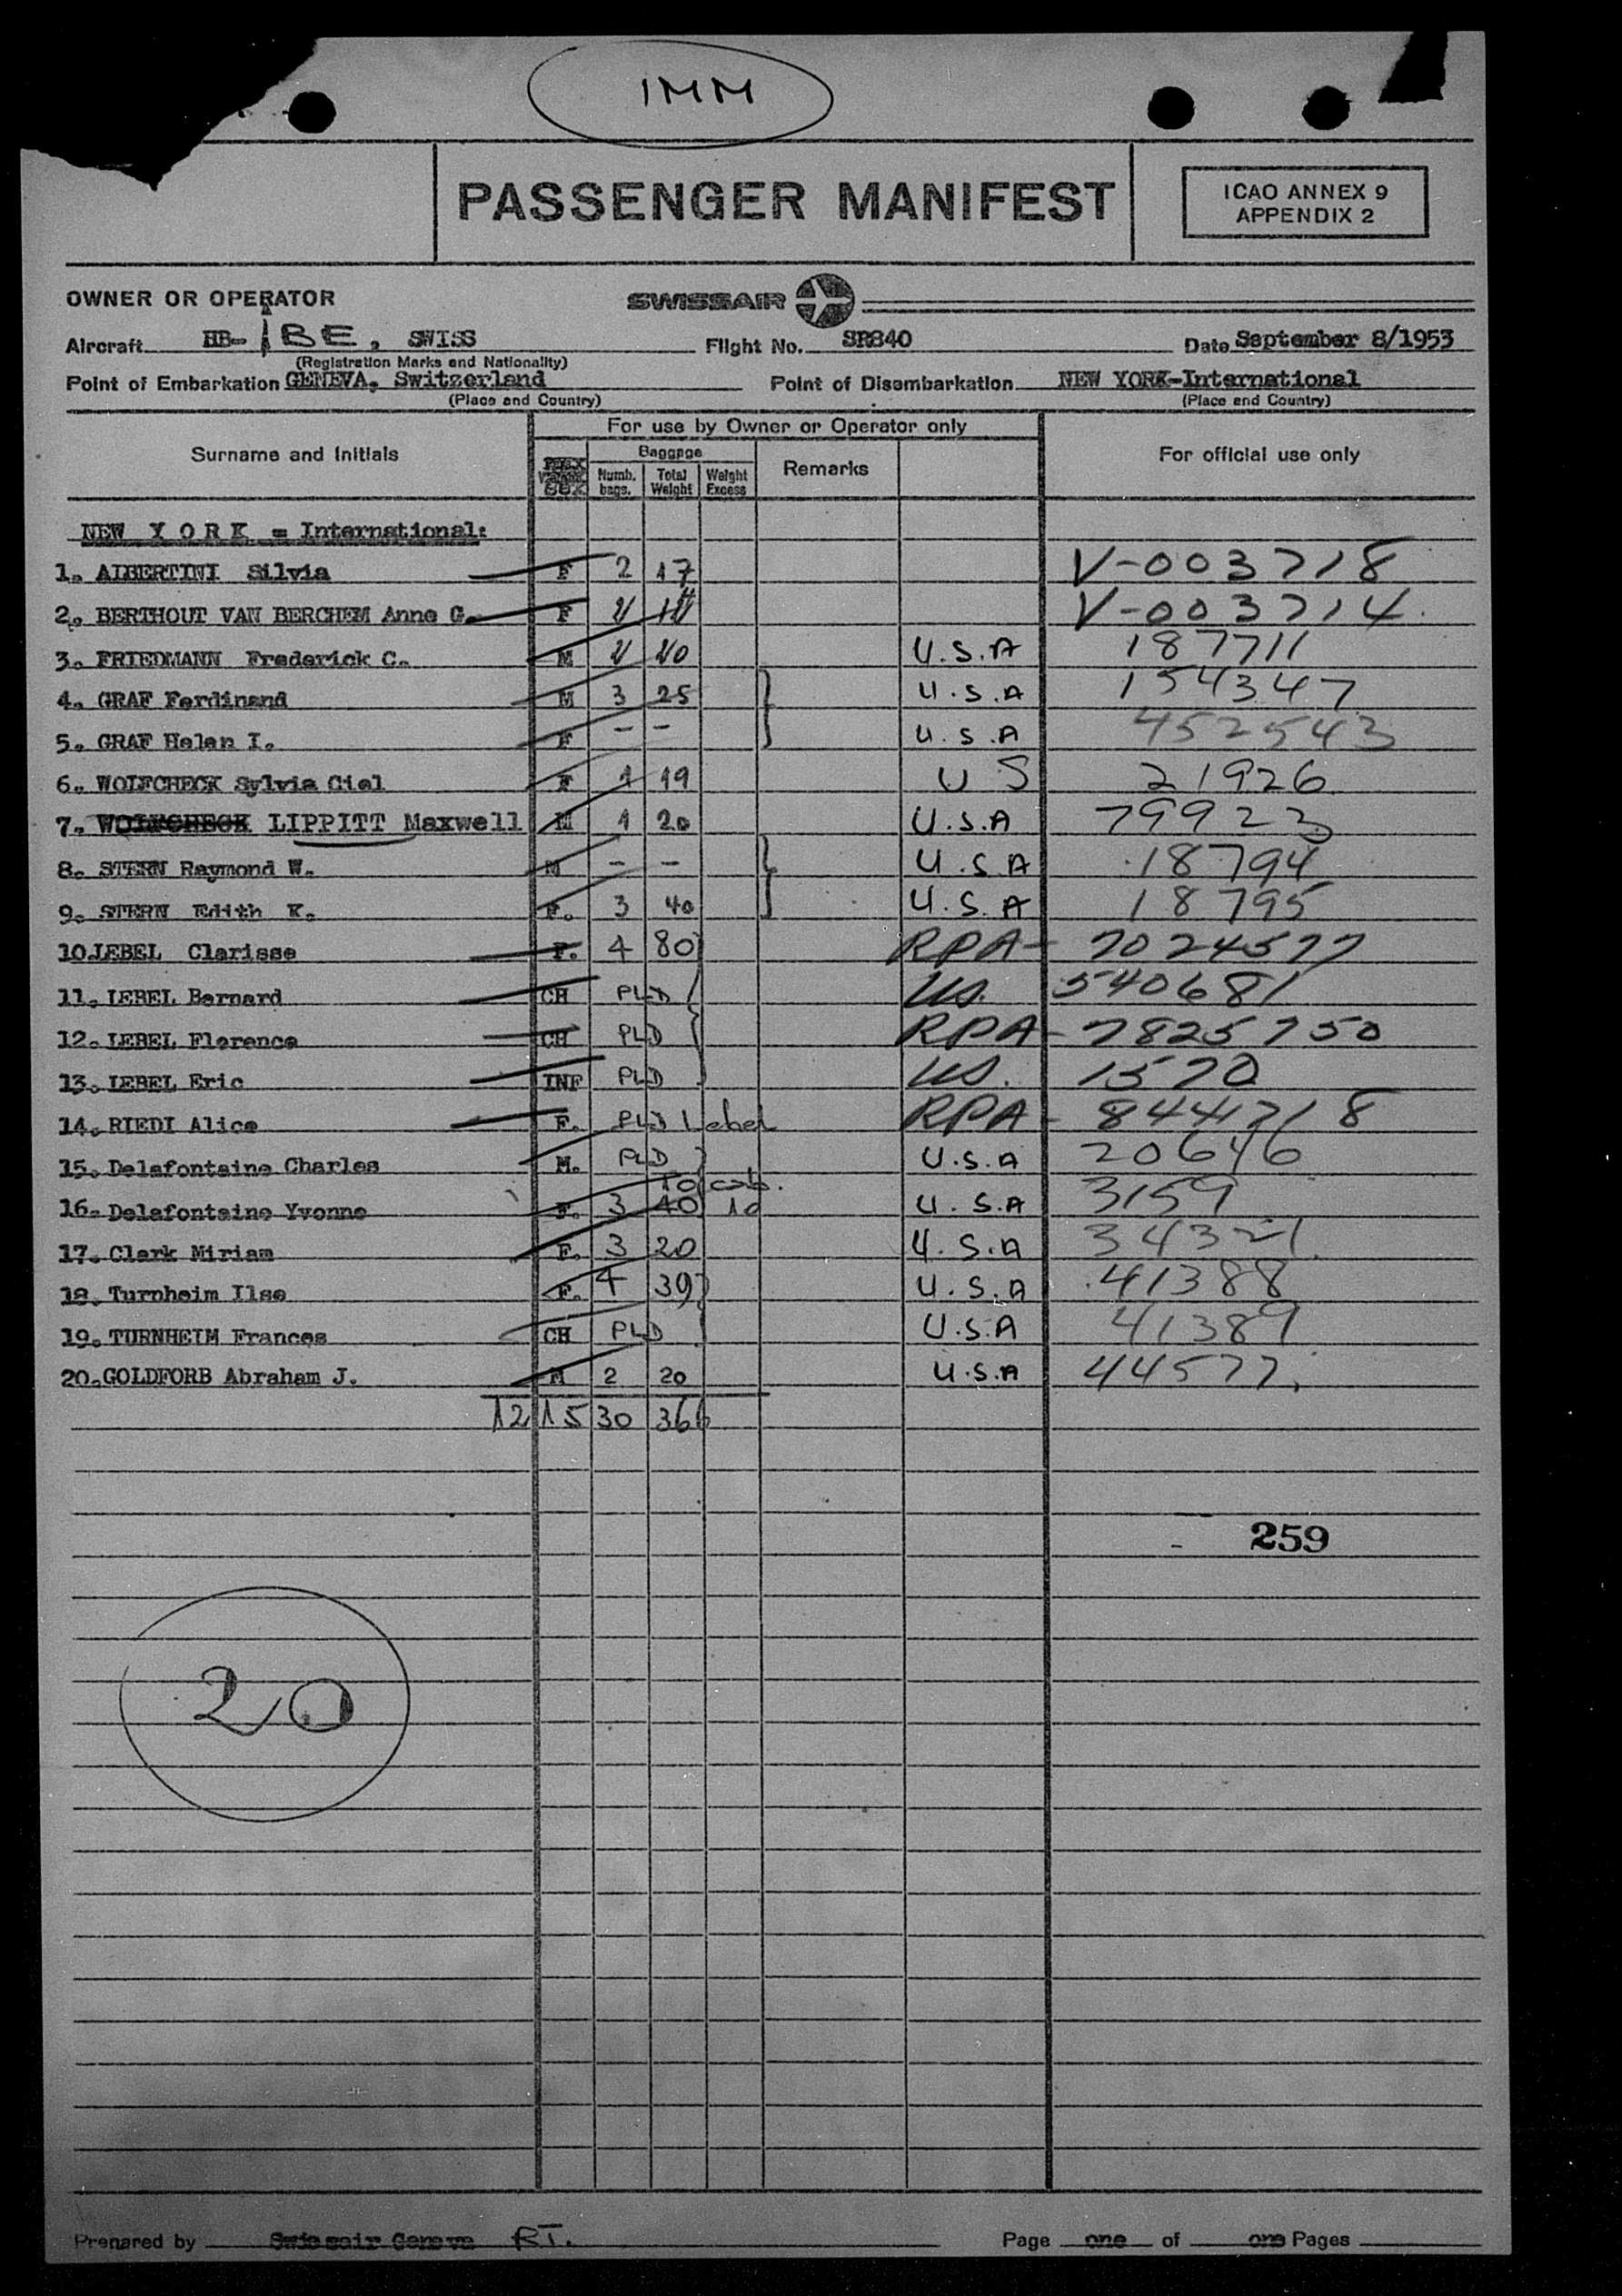 IMM
PASSENGER MANIFEST
ICAO ANNEX 9
APPENDIX 2
OWNER OR OPERATOR
SWISSAIR
Aircraft HB-IBE, SWISS Flight No. SR840 Date September 8/1953
(Registration Marks and Nationality)
Point of Embarkation GENEVA, Switzerland Point of Disembarkation NEW YORK-International
(Place and Country) (Place and Country)
For use by Owner or Operator only
Surname and Initials Baggage Remarks For official use only
SEX Numb. bags. Total Weight Weight Excess
NEW YORK = International:
1. ALBERTINI Silvia F 2 17 V-003718
2. BERTHOUT VAN BERCHEM Anne G. F V-003714
3. FRIEDMANN Frederick C. M U.S.A 187711
4. GRAF Ferdinand M 3 25 U.S.A 154347
5. GRAF Helen I. F - - U.S.A 452543
6. WOLFCHECK Sylvia Ciel F 1 19 U S 21926
7. WOLFCHECK LIPPITT Maxwell M 1 20 U.S.A 79923
8. STERN Raymond W. M - - U.S.A 18794
9. STERN Edith K. F. 3 40 U.S.A 18795
10.LEBEL Clarisse F. 4 80 RPA- 7024577
11. LEBEL Bernard CH PLD US. 540681
12. LEBEL Florence CH PLD RPA- 7825750
13. LEBEL Eric INF PLD US. 1570
14. RIEDI Alice F. PLD Lebel RPA- 8441718
15. Delafontaine Charles M. PLD U.S.A 20646
10 cab.
16. Delafontaine Yvonne F. 3 40 10 U.S.A 3159
17. Clark Miriam F. 3 20 U.S.A 34321
18. Turnheim Ilse F. 4 39 U.S.A 41388
19. TURNHEIM Frances CH PLD U.S.A 41389
20.GOLDFORB Abraham J. M 2 20 U.S.A 44577
12 15 30 366
259
20
Prepared by Swissair Geneva RT. Page one of one Pages